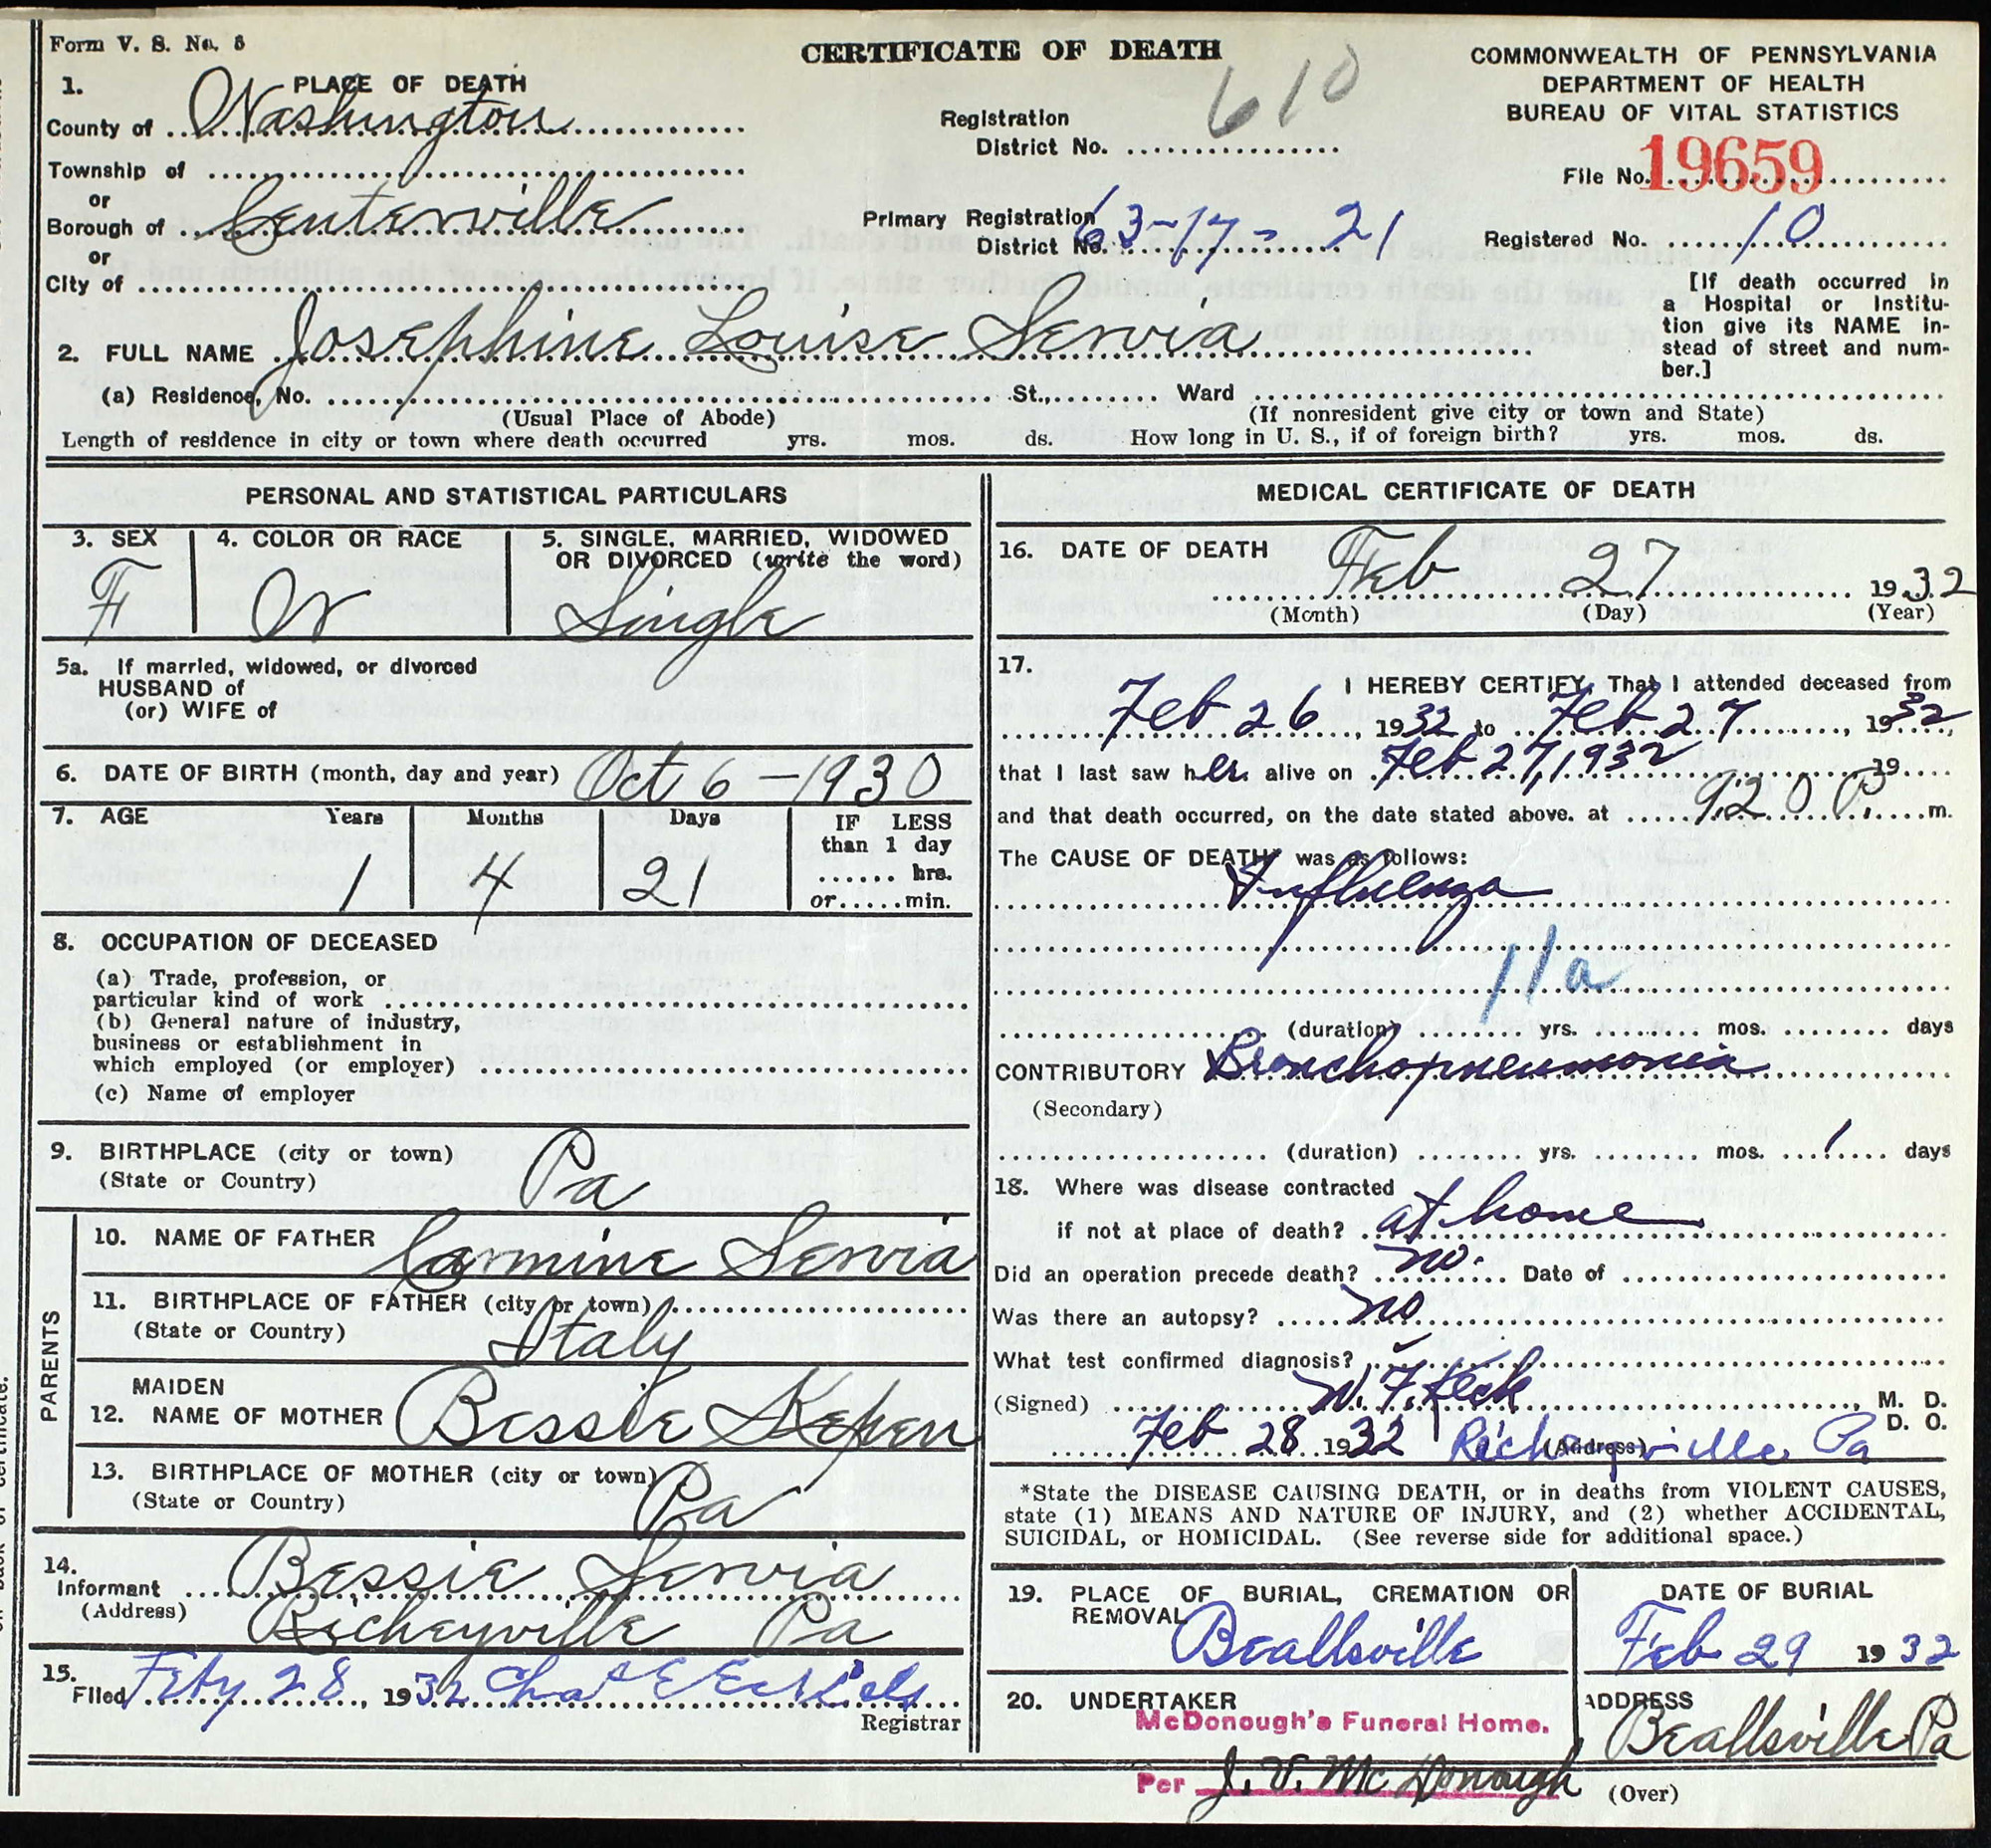 Form V. S. No. 5
CERTIFICATE OF DEATH
COMMONWEALTH OF PENNSYLVANIA
DEPARTMENT OF HEALTH
BUREAU OF VITAL STATISTICS
1. PLACE OF DEATH
County of Washington
Township of
or
Borough of Centerville
or
City of
610
Registration
District No.
Primary Registration
District No. 63-17-21
File No. 19659
Registered No. 10
[If death occurred in
a Hospital or Institu-
tion give its NAME in-
stead of street and num-
ber.]
2. FULL NAME Josephine Louise Servia
(a) Residence, No. St., Ward
(Usual Place of Abode) (If nonresident give city or town and State)
Length of residence in city or town where death occurred yrs. mos. ds. How long in U. S., if of foreign birth? yrs. mos. ds.
PERSONAL AND STATISTICAL PARTICULARS
3. SEX 4. COLOR OR RACE 5. SINGLE, MARRIED, WIDOWED
OR DIVORCED (write the word)
F W Single
5a. If married, widowed, or divorced
HUSBAND of
(or) WIFE of
6. DATE OF BIRTH (month, day and year) Oct 6 - 1930
7. AGE Years Months Days IF LESS
than 1 day
hrs.
or min.
1 4 21
8. OCCUPATION OF DECEASED
(a) Trade, profession, or
particular kind of work
(b) General nature of industry,
business or establishment in
which employed (or employer)
(c) Name of employer
9. BIRTHPLACE (city or town)
(State or Country) Pa
PARENTS
10. NAME OF FATHER Carmine Servia
11. BIRTHPLACE OF FATHER (city or town)
(State or Country) Italy
MAIDEN
12. NAME OF MOTHER Bessie
13. BIRTHPLACE OF MOTHER (city or town)
(State or Country) Pa
14. Informant Bessie Servia
(Address) Richeyville Pa
15. Filed 28, 1932 Chas E
Registrar
MEDICAL CERTIFICATE OF DEATH
16. DATE OF DEATH Feb 27 1932
(Month) (Day) (Year)
17. I HEREBY CERTIFY, That I attended deceased from
Feb 26, 1932 to Feb 27, 1932,
that I last saw her alive on Feb 27, 1932 19
and that death occurred, on the date stated above. at 920 P. m.
The CAUSE OF DEATH* was as follows:
Influenza
11a
(duration) yrs. mos. days
CONTRIBUTORY Bronchopneumonia
(Secondary)
(duration) yrs. mos. 1 days
18. Where was disease contracted
if not at place of death? at home
Did an operation precede death? no. Date of
Was there an autopsy? no
What test confirmed diagnosis?
(Signed) W. F. Keck, M. D.
D. O.
Feb 28 1932 (Address) Richeyville Pa
*State the DISEASE CAUSING DEATH, or in deaths from VIOLENT CAUSES,
state (1) MEANS AND NATURE OF INJURY, and (2) whether ACCIDENTAL,
SUICIDAL, or HOMICIDAL. (See reverse side for additional space.)
19. PLACE OF BURIAL, CREMATION OR
REMOVAL
Beallsville
DATE OF BURIAL
Feb 29 1932
20. UNDERTAKER
McDonough's Funeral Home.
Per J. V. McDonough
ADDRESS
Beallsville Pa
(Over)